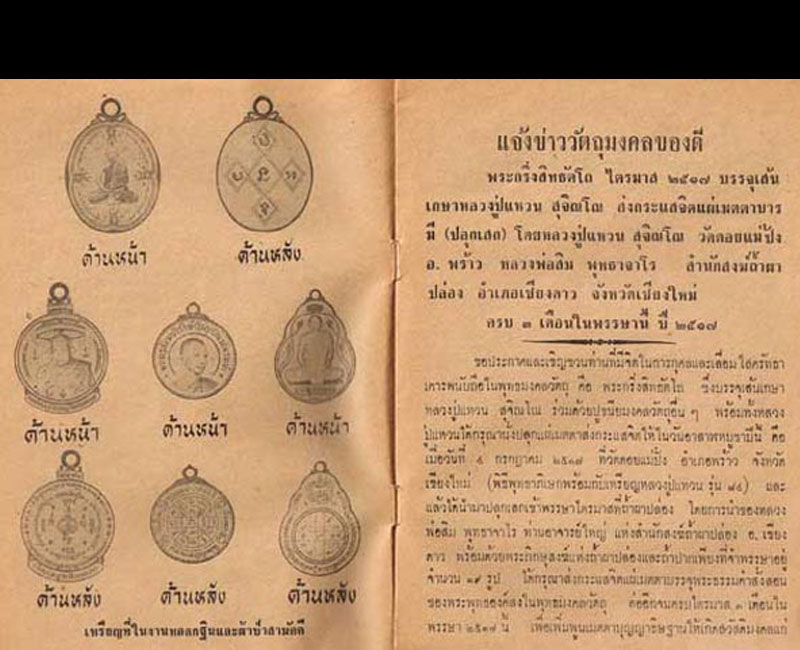 ด้านหน้า
ด้านหลัง
ด้านหน้า
ด้านหน้า
ด้านหน้า
ด้านหลัง
ด้านหลัง
ด้านหลัง
เหรียญที่ในงานทอดกฐินและผ้าป่าสามัคคี
แจ้งข่าววัตถุมงคลของดี
พระกริ่งสิทธัตโถ ไตรมาส ๒๕๑๗ บรรจุเส้น
เกษาหลวงปู่แหวน สุจิณโณ ส่งกระแสจิตแผ่เมตตาบาร
มี (ปลุกเสก) โดยหลวงปู่แหวน สุจิณโณ วัดดอยแม่ปั๋ง
อ. พร้าว หลวงพ่อสิม พุทธาจาโร สำนักสงฆ์ถ้ำผา
ปล่อง อำเภอเชียงดาว จังหวัดเชียงใหม่
ครบ ๓ เดือนในพรรษานี้ ปี ๒๕๑๗
ขอประกาศและเชิญชวนท่านที่มีจิตในการกุศลและเลื่อมใสศรัทธา
เคารพนับถือในพุทธมงคลวัตถุ คือ พระกริ่งสิทธัตโถ ซึ่งบรรจุเส้นเกษา
หลวงปู่แหวน สุจิณโณ ร่วมด้วยปูชนียมงคลวัตถุอื่น ๆ พร้อมทั้งหลวง
ปู่แหวนได้กรุณานั่งปลุกแผ่เมตตาส่งกระแสจิตให้ในวันอาสาฬหบูชามีนี้ คือ
เมื่อวันที่ ๔ กรกฎาคม ๒๕๑๗ ที่วัดดอยแม่ปั๋ง อำเภอพร้าว จังหวัด
เชียงใหม่ (พิธีพุทธาภิเษกพร้อมกับเหรียญหลวงปู่แหวน รุ่น ๘๔) และ
แล้วได้นำมาปลุกเสกเข้าพรรษาไตรมาสที่ถ้ำผาปล่อง โดยการนำของหลวง
พ่อสิม พุทธาจาโร ท่านอาจารย์ใหญ่ แห่งสำนักสงฆ์ถ้ำผาปล่อง อ. เชียง
ดาว พร้อมด้วยพระภิกษุสงฆ์แห่งถ้ำผาปล่องและถ้ำปากเปียงที่จำพรรษาอยู่
จำนวน ๑๙ รูป ได้กรุณาส่งกระแสจิตแผ่เมตตาบรรจุพระธรรมคำสั่งสอน
ของพระพุทธองค์ลงในพุทธมงคลวัตถุ ต่ออีกจนครบไตรมาส ๓ เดือนใน
พรรษา ๒๕๑๗ นี้ เพื่อเพิ่มพูนเมตตาบุญญาธิษฐานให้เกิดสวัสดิมงคลแก่